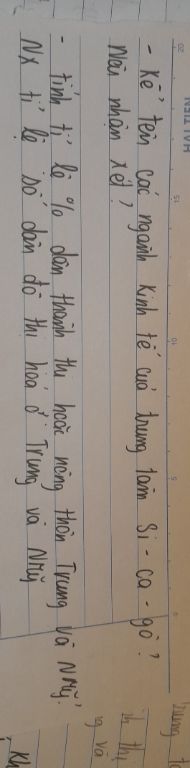 - Kể tên các ngành kinh tế của trung tâm Si - ca - gô?
Nêu nhận xét?
- tính tỉ lệ % dân thành thị hoặc nông thôn Trung và N Mỹ.
Nx tỉ lệ số dân đô thị hoá ở Trung và NMỹ